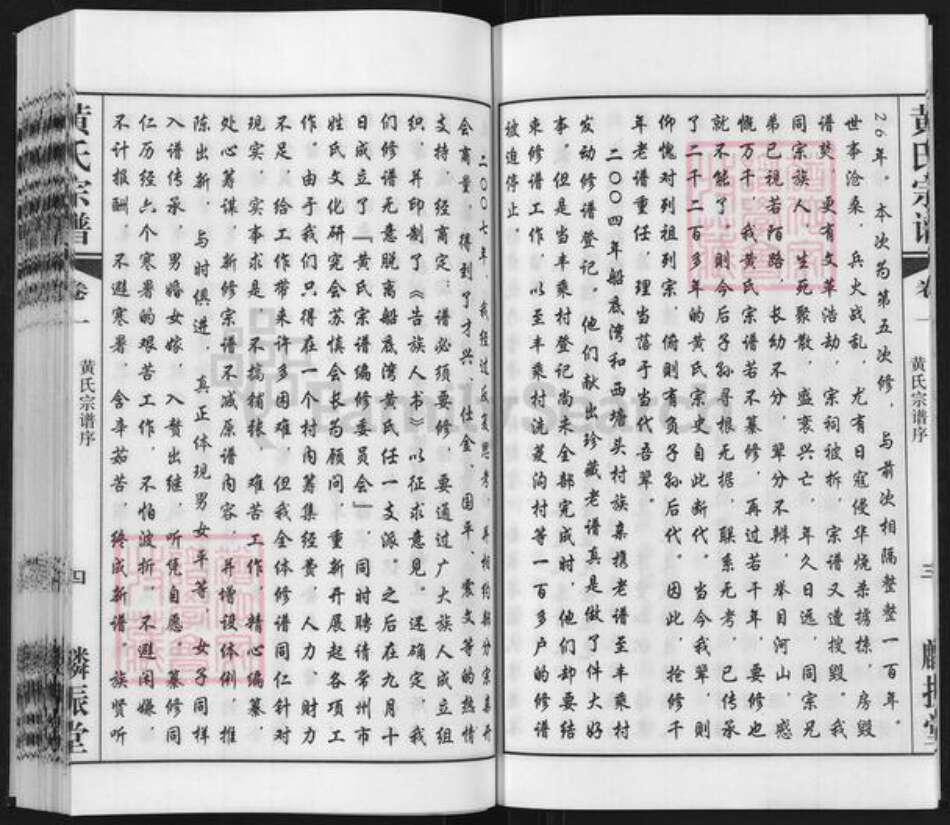 黄氏宗谱
卷一
黄氏宗谱序
三
麟振堂
26年。本次为第五次修，与前次相隔整整一百年。
世事沧桑，兵火战乱，尤有日寇侵华烧杀掳掠，房毁
谱焚，更有文革浩劫，宗祠被拆，宗谱又遭搜毁。我
同宗族人，生死聚散，盛衰兴亡，年久日远，同宗兄
弟已视若陌路，长幼不分，辈分不辨，举目河山，感
慨万千，我黄氏宗谱若不纂修，再过若干年，要修也
就不能了，则今后子孙寻根无据，联系无考，已传承
了二千二百多年的黄氏宗史自此断代。当今我辈，则
仰愧对列祖列宗，俯则有负子孙后代。因此，抢修千
年老谱重任，理当落于当代吾辈。
二00四年船底湾和西塘头村族亲携老谱至丰乘村
发动修谱登记。他们献出珍藏老谱真是做了件大好
事，但是当丰乘村登记尚未全部完成时，他们却要结
束修谱工作，以至丰乘村洗菱沟村等一百多户的修谱
被迫停止。
二00七年，我经过反复思考，并相约船分宗亲开
会商量，得到了才兴、仕金、国平、震文等的热情
支持，经商定，谱必须要修，要通过广大族人成立组
织，并印制了《告族人书》以征求意见。还确定，我
们修谱无意脱离船底湾黄氏任一支派。之后在九月十
日成立了「黄氏宗谱编修委员会」，同时聘请常州市
姓氏文化研究会苏慎会长为顾问，重新开展起各项工
作。由于我们只得在一个村内筹集经费，人力、财力
不足，给工作带来许多困难，但我全体修谱同仁针对
现实，实事求是，不搞铺张，难苦工作，精心编纂，
处心筹谋，新修宗谱不减原谱内容，并增设体例，推
陈出新，与时俱进，真正体现男女平等，女子同样
入谱传承，男婚女嫁，入赘出继，听凭自愿。纂修同
仁历经六个寒暑的艰苦工作，不怕波折，不避闲嫌，
不计报酬，不避寒暑，含辛茹苦，终成新谱，族贤听
黄氏宗谱
卷一
黄氏宗谱序
四
麟振堂
FamilySearch